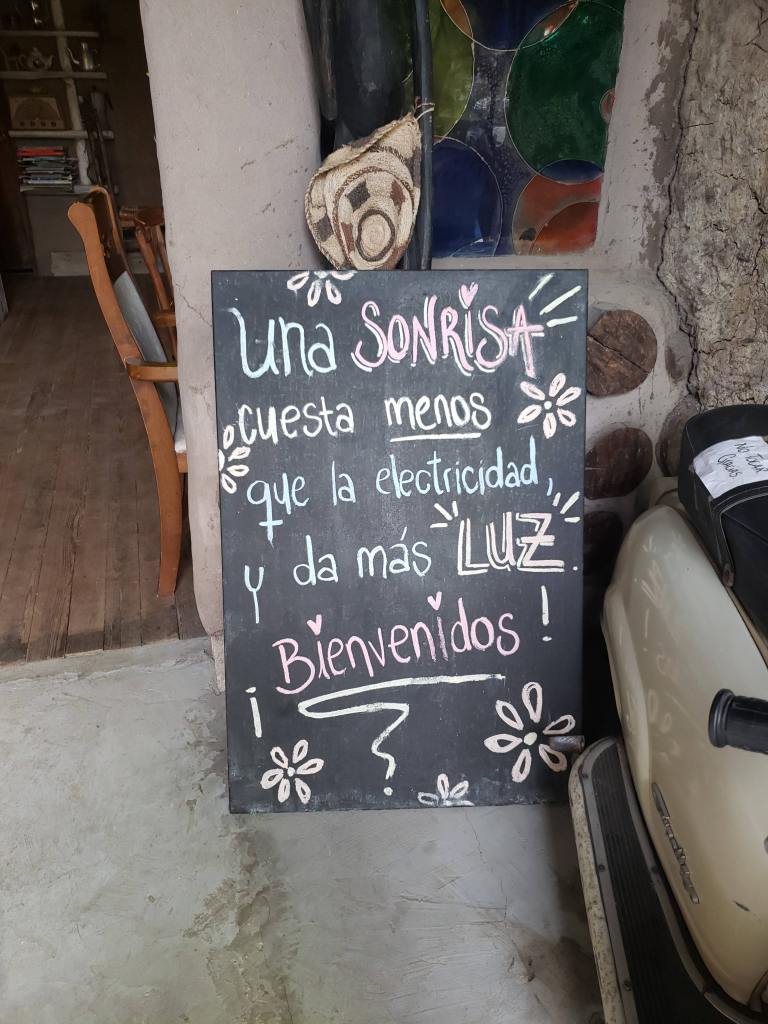 Una SONRISA
cuesta menos
que la electricidad,
y da más LUZ.
¡Bienvenidos!
NO TOCAR
GRACIAS